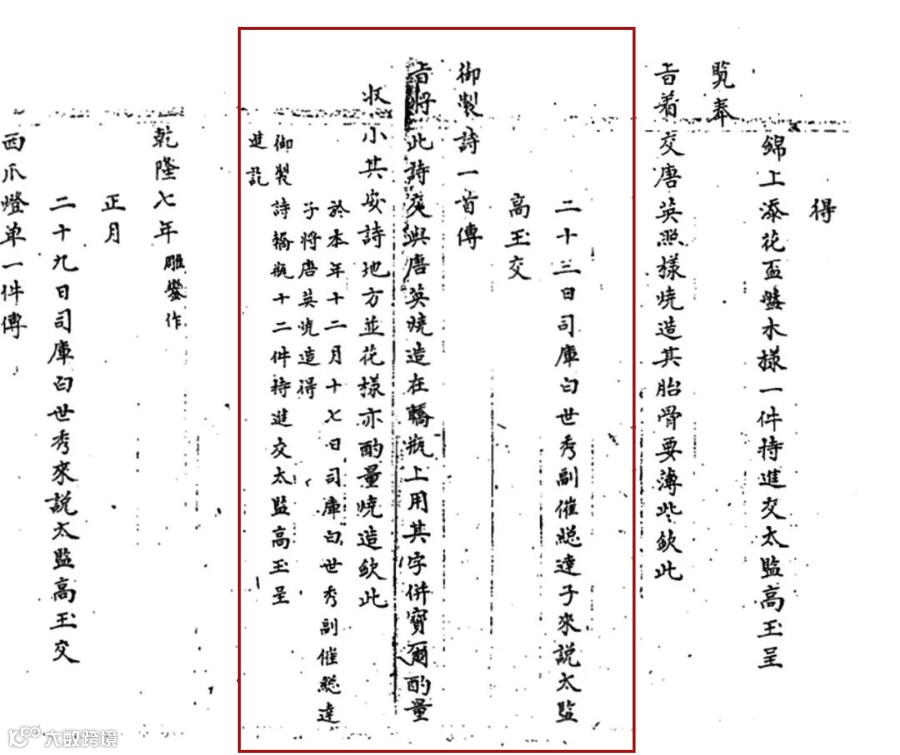 得
錦上添花盃盤木樣一件持進交太監高玉呈
覽奉
旨着交唐英照樣燒造其胎骨要薄些欽此
二十三日司庫白世秀副催總達子來說太監
高玉交
御製詩一首傳
旨將此詩交與唐英燒造在轎瓶上用其字併寶爾酌量
收小其安詩地方並花樣亦酌量燒造欽此
於本年十二月十七日司庫白世秀副催總達
子將唐英燒造得
御製詩轎瓶十二件持進交太監高玉呈
進訖
乾隆七年 雕鑾作
正月
二十九日司庫白世秀來說太監高玉交
西瓜燈單一件傳
大数跨境